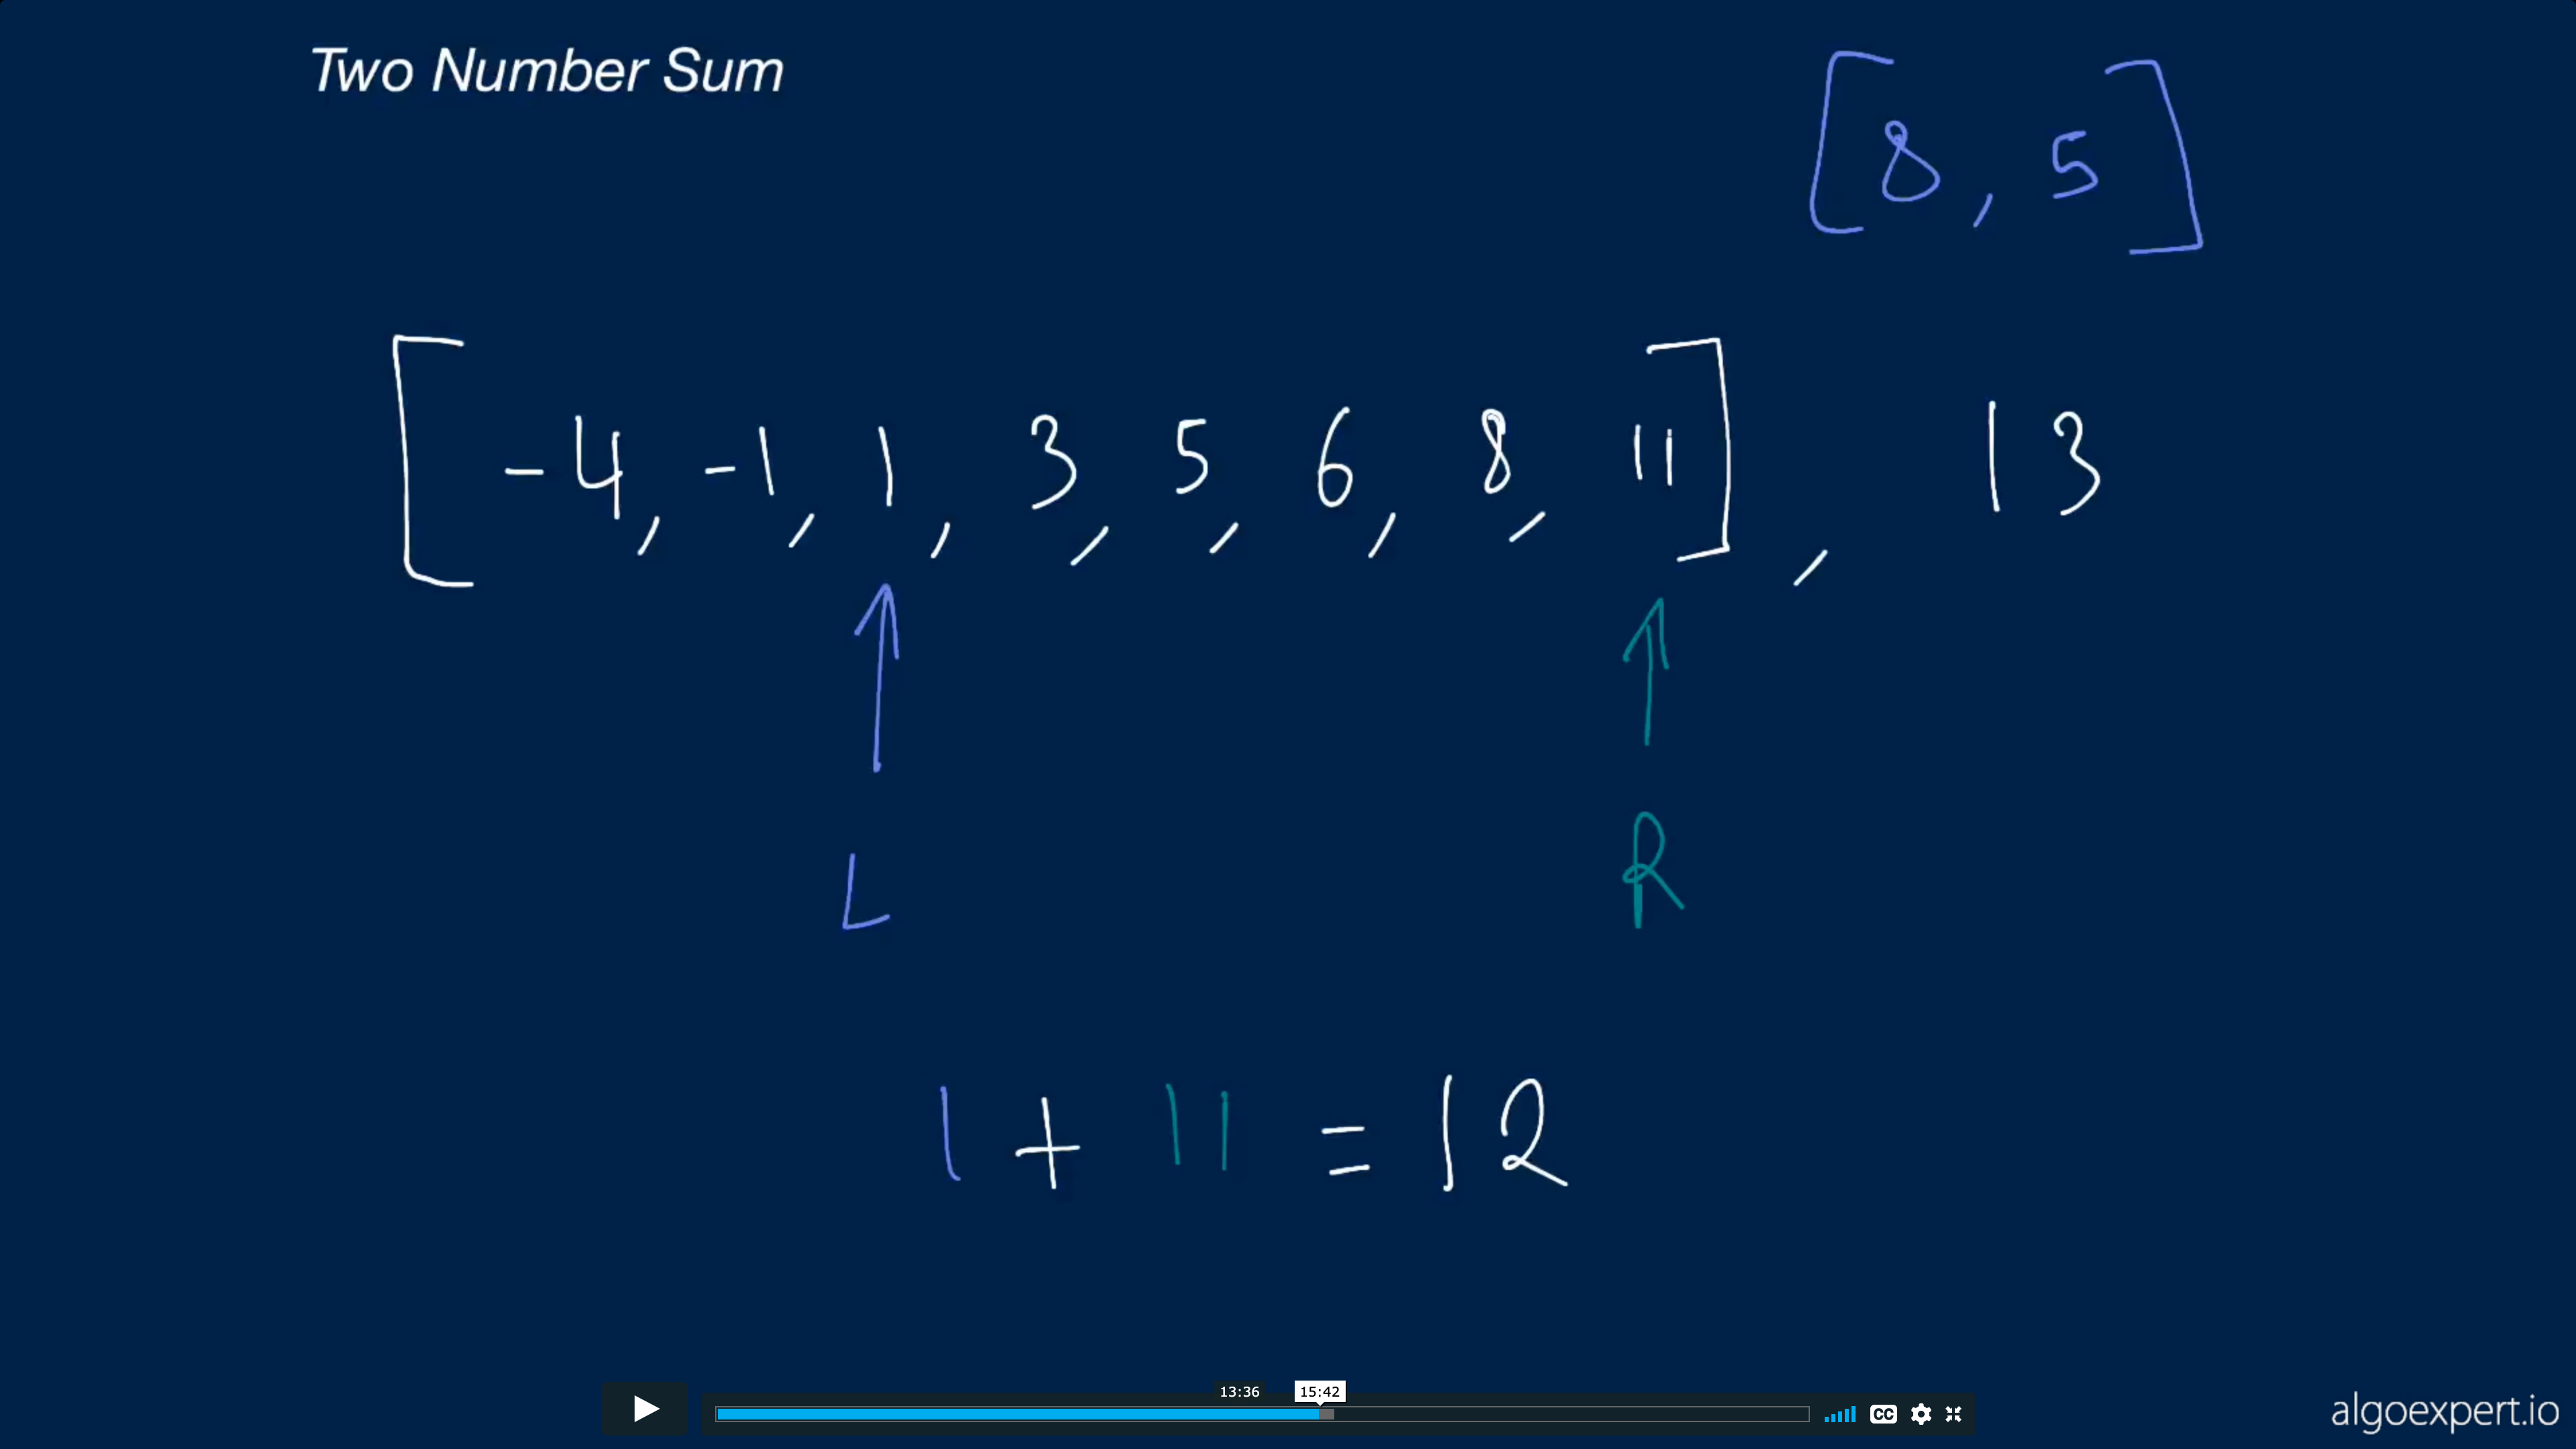 Two Number Sum
[8, 5]
[-4, -1, 1, 3, 5, 6, 8, 11], 13
L
R
1 + 11 = 12
13:36
15:42
CC
algoexpert.io